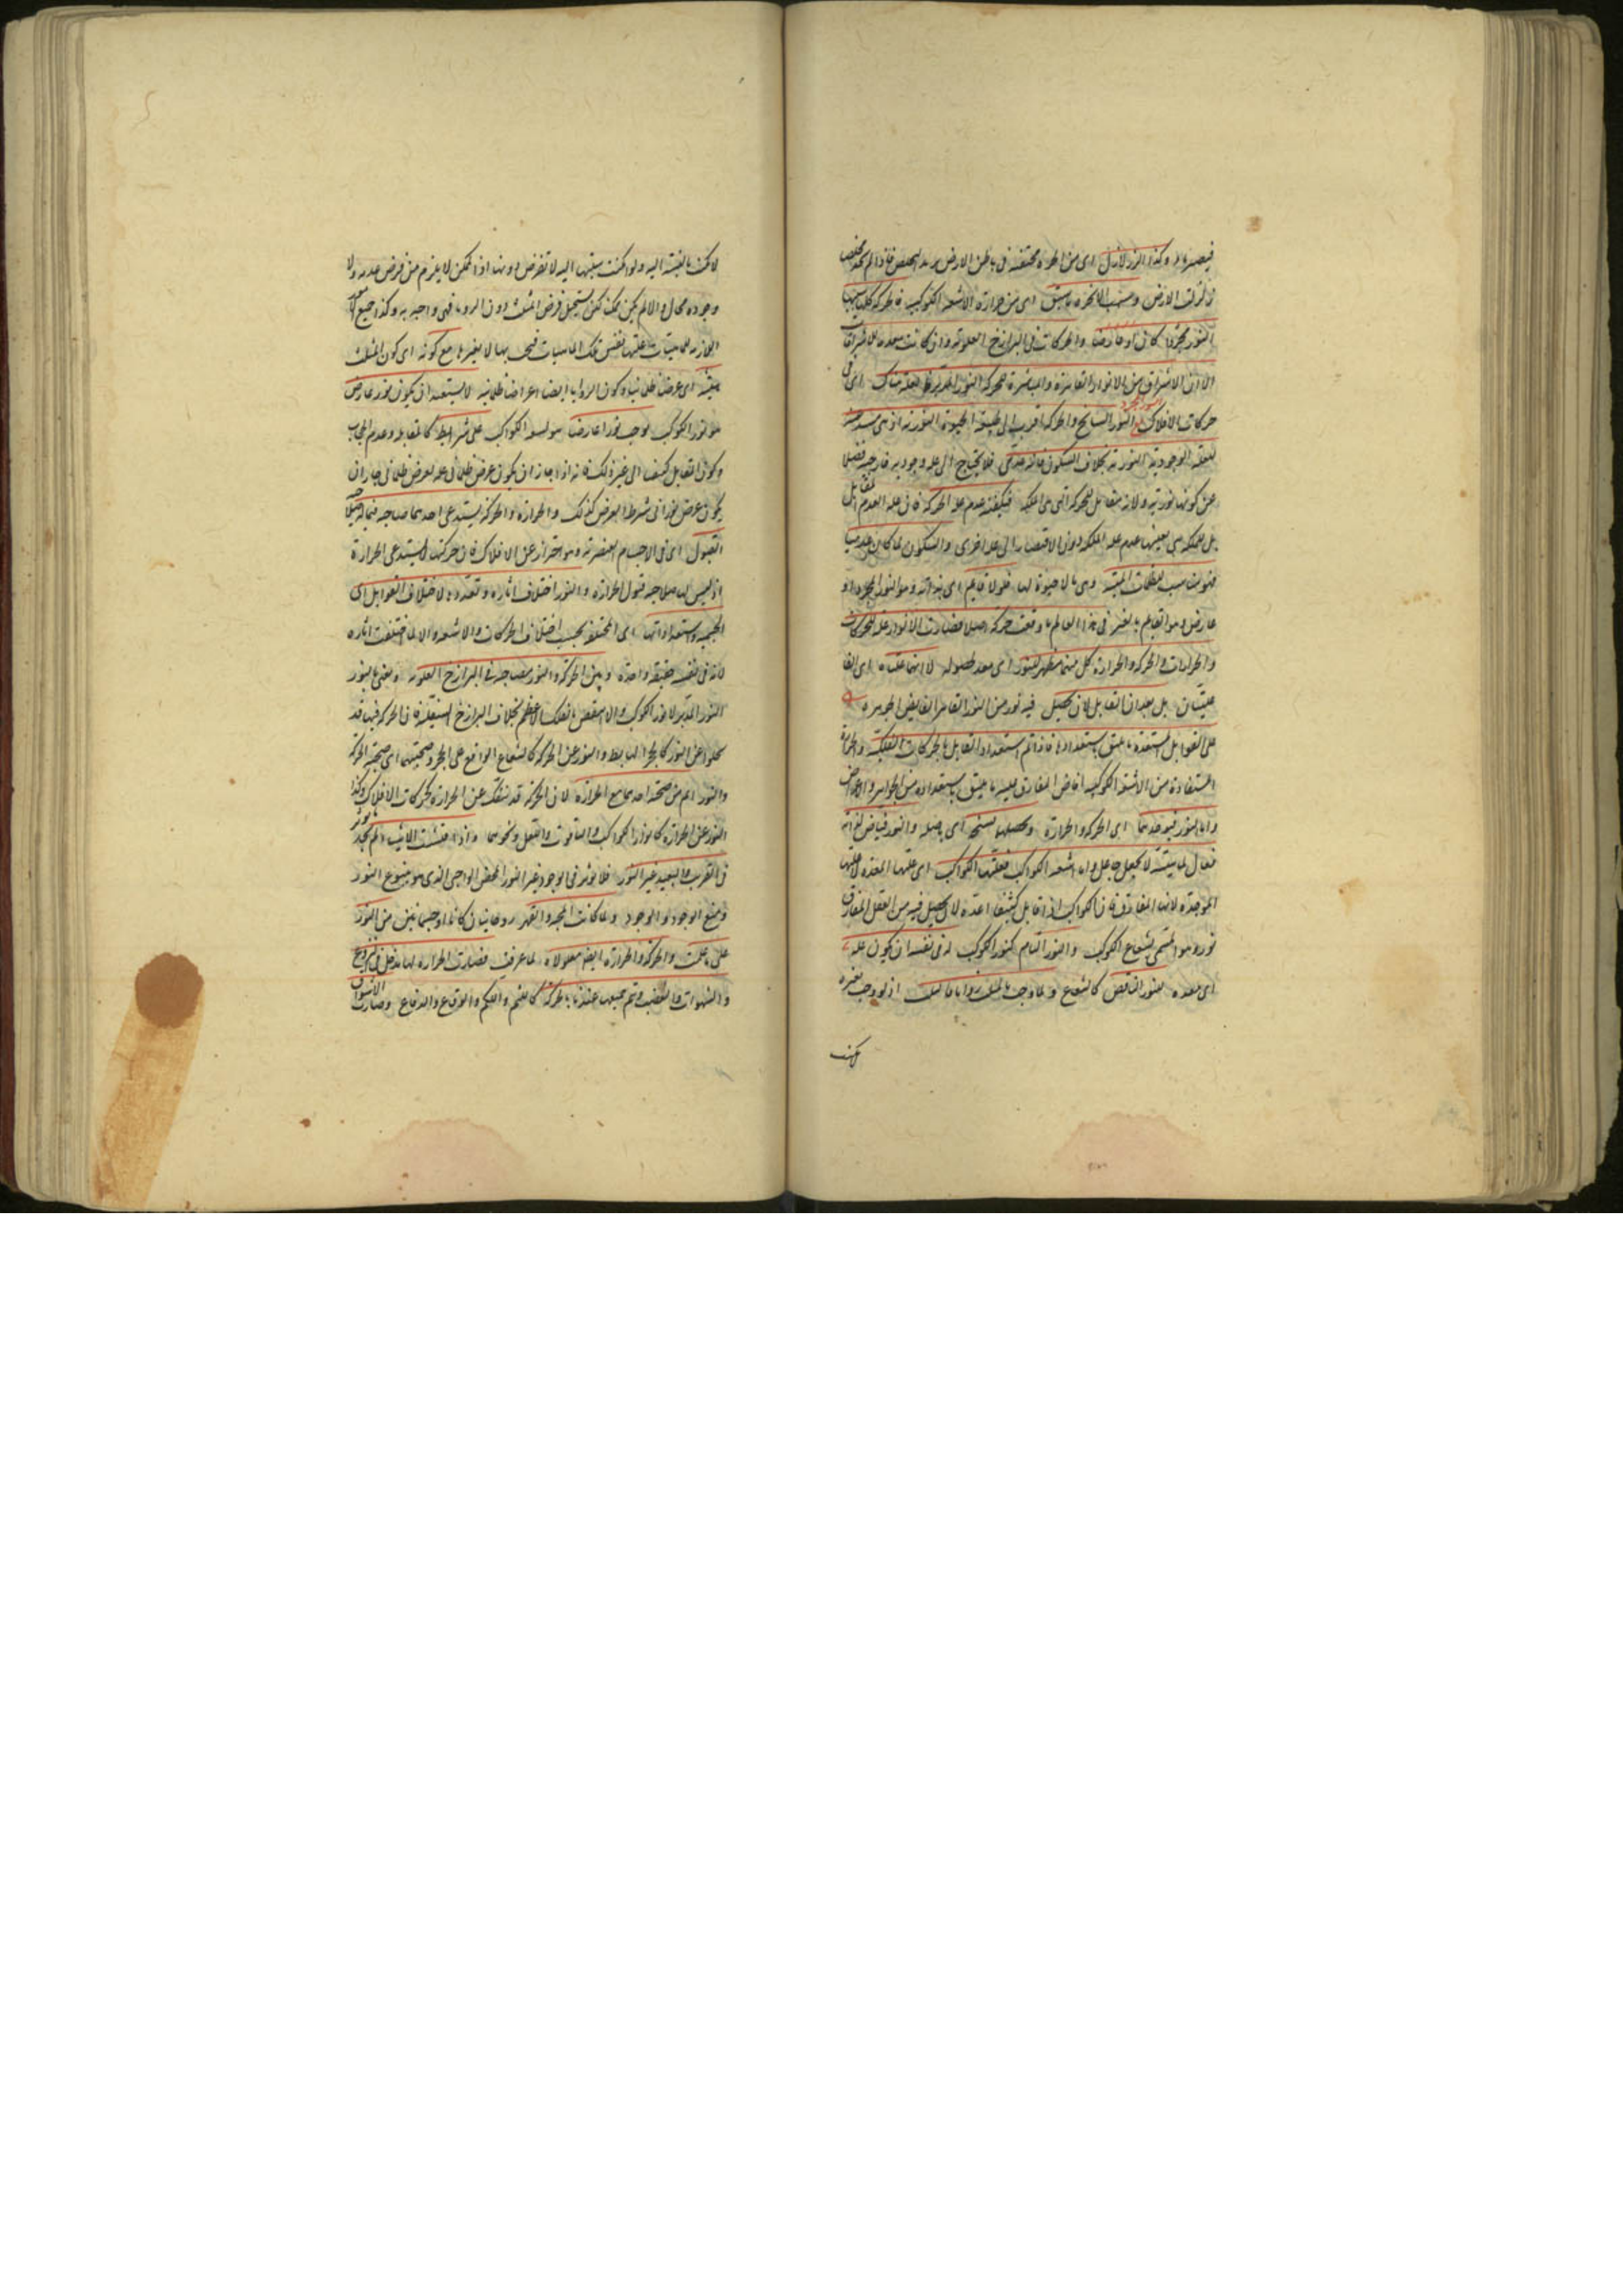 وكذا الزلازل اى من ابخرة محتقنة فى باطن الارض يريد التخلص فاذا لم تجد مخلص
زلزلت الارض وسبب الابخرة ما سبق اى من حرارة الاشعة الكوكبية فالحركة كلها سببها
النور مجردا كان او عارضا والحركات فى البرازخ العلوية وان كانت معدة للاشراقات
الا ان الاشراق من الانوار القاهرة والمباشرة للحركة النور المدبر هناك اى فى
حركات الافلاك النور السانح والحركة اقرب الى طبيعة الحيوة النورية اذ هى مستدعية
للعلة الوجودية النورية بخلاف السكون فانه عدمى فلا يحتاج الى علة وجودية خارجية فضلا
عن كونها نورية ولانه مقابل للحركة التى هى الملكة فيكفيه عدم علة الحركة فان علة العدم المقابل
بل للملكة هى بعينها عدم علة الملكة دون الافتقار الى علة اخرى والسكون لما كان عدميا
فهو يناسب الظلمات الميتة وهى ما لا حيوة لها فلولا قائم اى بذاته وهو النور المجرد او
عارض وهو القائم بالغير فى هذا العالم ما وقعت حركة اصلا فصارت الانوار علة للحركات
والحرارات والحركة والحرارة كل منهما مظهر للنور اى معد لحصوله لا انهما علتاه اى الفا
عليتان بل يعدان القابل لان يحصل فيه نور من النور القاهر الفائض بجوهره
على القوابل المستعدة ما يليق باستعدادها فاذا تم استعداد القابل بالحركات الفلكية والحرارة
المستفادة من الاشعة الكوكبية افاض المفارق عليه ما يليق باستعداده من الجواهر والاعراض
واما النور فيوجدهما اى الحركة والحرارة ويحصلهما بسنخه اى باصله والنور فياض لذاته
فعال لماهيته لا بجعل جاعل واما اشعة الكواكب فعلتها الكواكب اى علتها المعدة لا علتها
الموجدة لانها المفارق فان الكواكب اذا قابل كثيفا اعده لان يحصل فيه من العقل المفارق
نوره هو المسمى بشعاع الكوكب والنور التام كنور الكوكب له فى نفسه ان يكون علة
اى معدة للنور الناقص كالشعاع ولما وجب بالمثلث زواياه الثلث اذ لو وجب بغيره
لامكنت
لامكنت بالنسبة اليه ولو امكنت نسبتها اليه لا تفرض دونها اذ الممكن لا يلزم من فرض عدمه ولا
وجوده محال والا لم يكن ممكنا لكن يستحيل فرض المثلث دون الزوايا فهى واجبة به وكذا جميع الامور
اللازمة للماهيات علتها نفس تلك الماهيات فيجب بها لا بغيرها مع كونه اى كون المثلث
هيئة اى عرضا ظلمانيا وكون الزوايا ايضا اعراضا ظلمانية لا يستبعد ان يكون نور عارض
هو نور الكوكب يوجب نورا عارضا هو اشعة الكواكب على شرايط كالمقابلة وعدم الحجاب
وكون القابل كثيفا الى غير ذلك فانه اذا جاز ان يكون عرض ظلمانى علة لعرض ظلمانى جاز ان
يكون عرض نورانى شرط العرض كذلك والحرارة والحركة يستدعى احدهما صاحبه فيما له صلاحية
القبول اى فى الاجسام العنصرية وهو احتراز عن الافلاك فان حركتها لا يستدعى الحرارة
اذ ليس لها صلاحية قبول الحرارة والنور اختلاف آثاره وتعدده لاختلاف القوابل اى
الجسمية واستعداداتها اى المختلفة بحسب اختلاف الحركات والاشعة والا لما اختلفت آثاره
لانه فى نفسه حقيقة واحدة وبين الحركة والنور مصاحبة فى البرازخ العلوية ونعنى بالنور
النور المدبر لا نور الكوكب والا انتقض بالفلك الاعظم بخلاف البرازخ السفلية فان الحركة فيها قد
تخلو عن النور كالحجر الهابط والنور عن الحركة كالشعاع الواقع على الحجر وصحبتهما اى صحبة الحركة
والنور اتم من صحبة احدهما مع الحرارة لان الحركة قد تنفك عن الحرارة كحركات الافلاك وكذا
النور عن الحرارة كانوار الكواكب والياقوت واللعل ونحوهما واذا فتشت الاشياء لم تجد مؤثرا
فى القريب والبعيد غير النور فلا مؤثر فى الوجود غير النور المحض الواجبى الذى هو ينبوع النور
ومنبع الوجود ولما كانت المحبة والقهر روحانيان كانا او جسمانيين من النور
على ما علمت والحركة والحرارة ايضا معلولاه لما عرفت فصارت الحرارة لها مدخل فى النزوع
والشهوات والغضب ويتم جميعها عندنا بالحركة كاللثم واللكم والوقاع والدفاع وصارت الاشواق